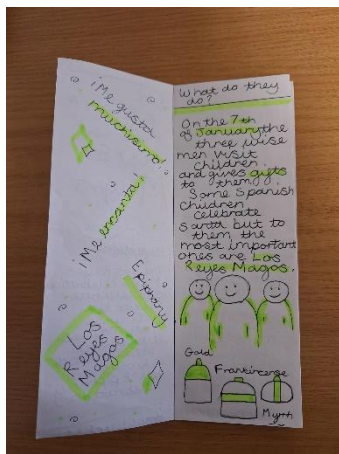 ¡Me gusta
muchisimo!
¡Me encanta!
Epiphany
Los
Reyes
Magos
What do they
do?
On the 7th
of January the
three wise
men visit
children
and gives gifts
to them.
Some Spanish
Children
celebrate
santa but to
them the
most important
ones are Los
Reyes Magos.
Gold
Frankincense
Myrrh